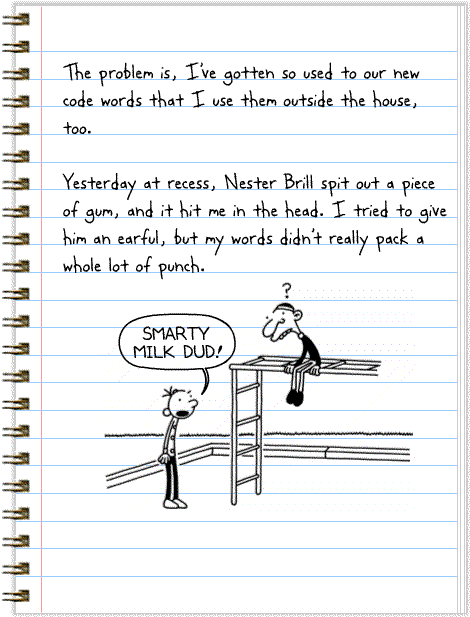 The problem is, I've gotten so used to our new
code words that I use them outside the house,
too.
Yesterday at recess, Nester Brill spit out a piece
of gum, and it hit me in the head. I tried to give
him an earful, but my words didn't really pack a
whole lot of punch.
?
SMARTY
MILK DUD!